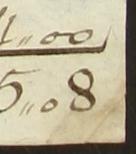 4〃00
5〃08